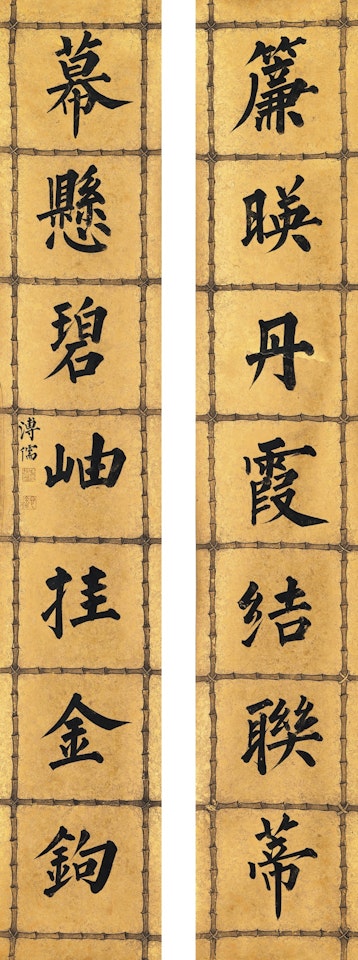 簾暎丹霞結聯蒂
幕懸碧岫挂金鉤
溥儒